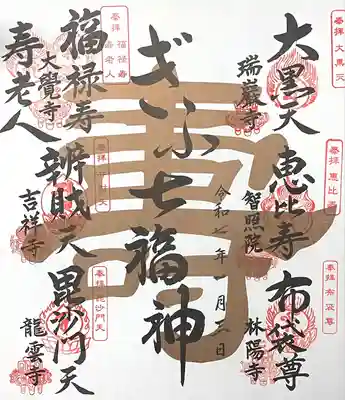 奉拝 大黒天
大黒天
瑞巌寺
奉拝 恵比寿
恵比寿
智照院
奉拝 布袋尊
布袋尊
林陽寺
ぎふ七福神
令和七年一月三日
奉拝 福禄寿
寿老人
福禄寿
大覺寺
寿老人
辨財天
吉祥寺
奉拝 毘沙門天
毘沙門天
龍雲寺
寿